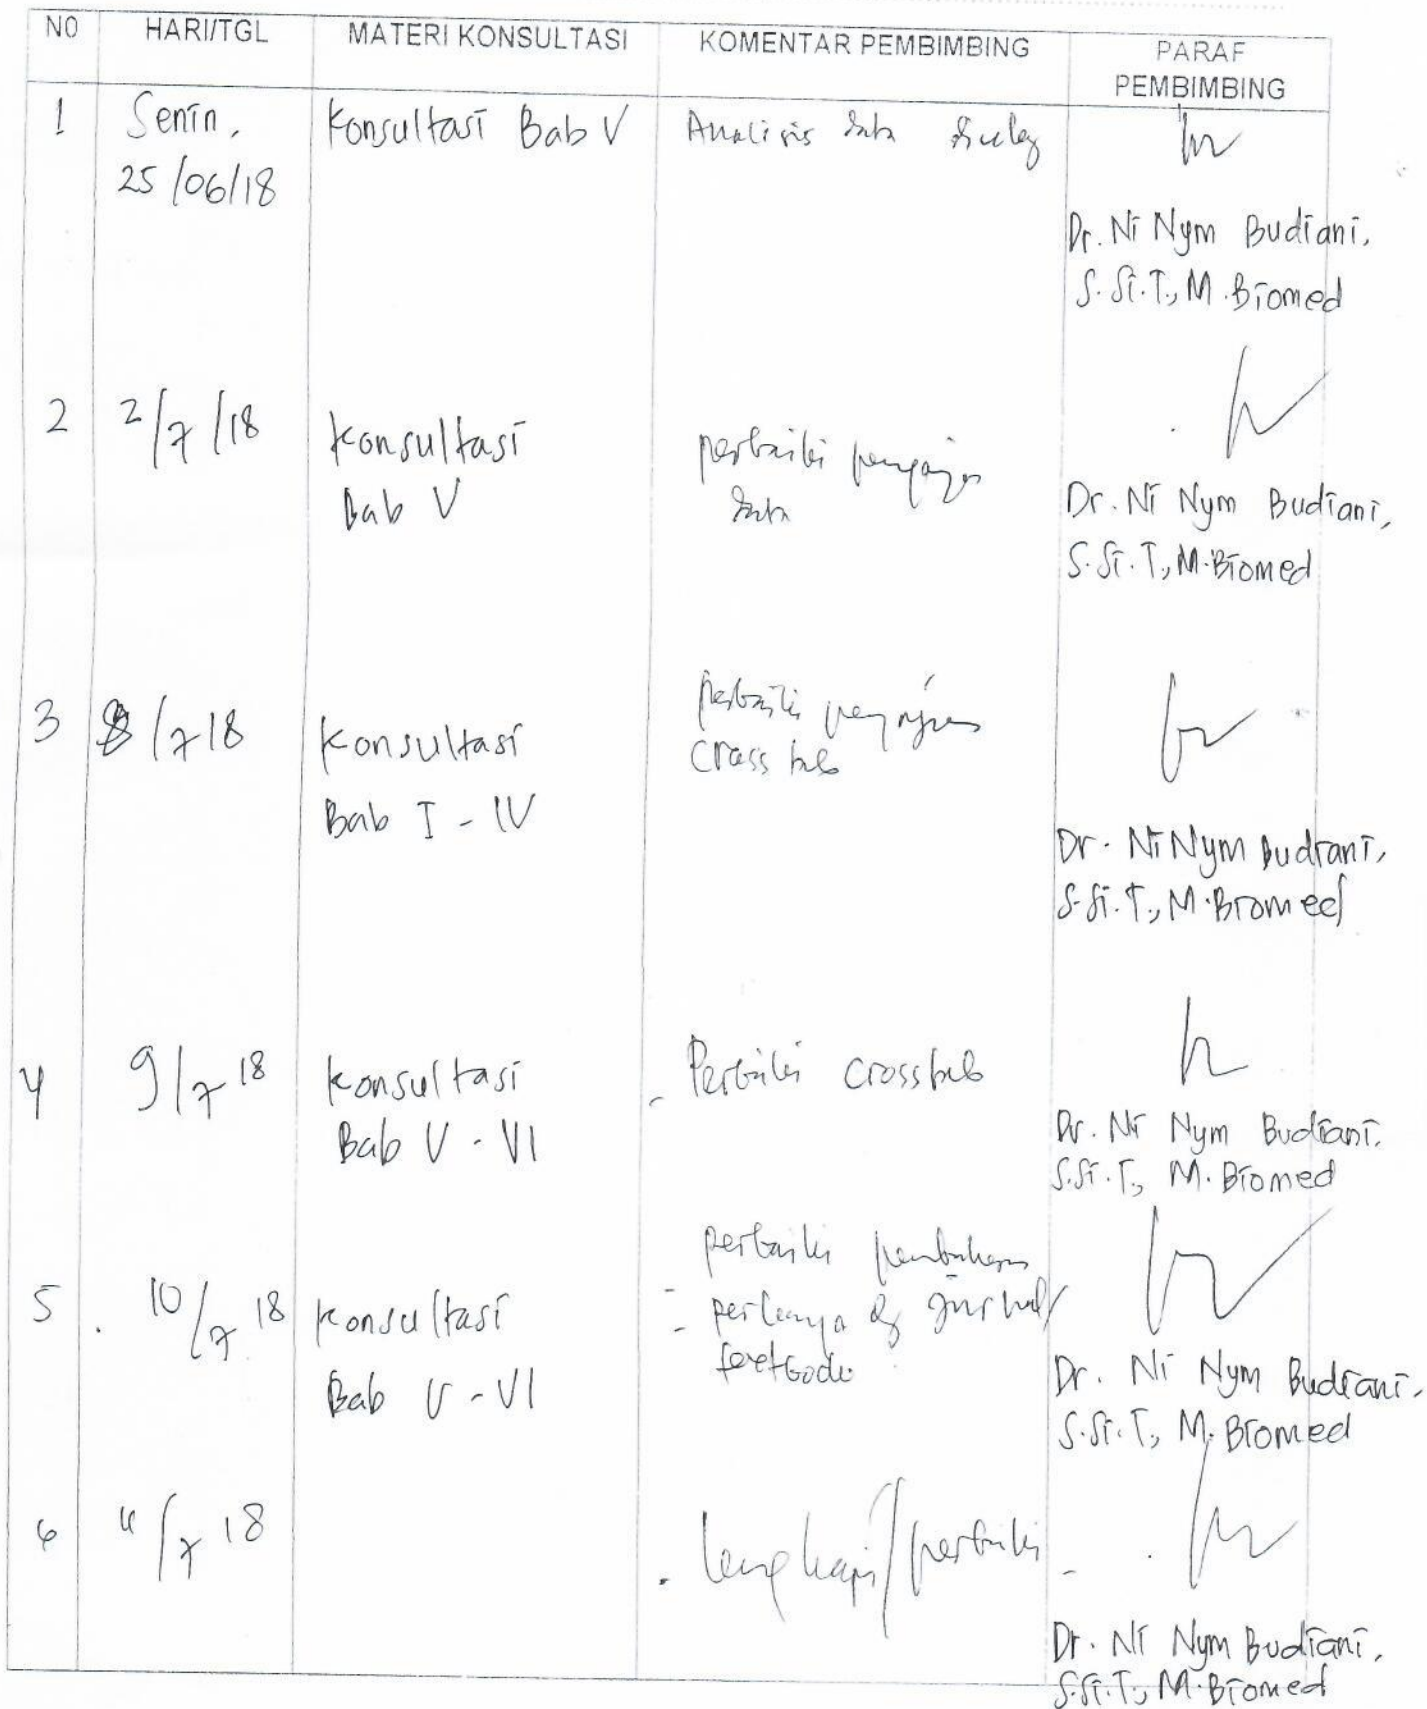 NO HARI/TGL MATERI KONSULTASI KOMENTAR PEMBIMBING PARAF
PEMBIMBING
1 Senin, Konsultasi Bab V Analisis data
25/06/18
Dr. Ni Nym Budiani,
S.Si.T., M.Biomed
2 2/7/18 Konsultasi perbaiki
Bab V data
Dr. Ni Nym Budiani,
S.Si.T., M.Biomed
3 8/7 18 Konsultasi perbaiki
Bab I - IV
Dr. Ni Nym Budiani,
S.Si.T., M.Biomed
4 9/7 18 Konsultasi - Perbaiki crosstab
Bab V - VI
Dr. Ni Nym Budiani,
S.Si.T., M.Biomed
5 10/7 18 Konsultasi - perbaiki pembahasan
Bab V - VI
Dr. Ni Nym Budiani,
S.Si.T., M.Biomed
6 11/7 18 - lengkapi/perbaiki
Dr. Ni Nym Budiani,
S.Si.T., M.Biomed